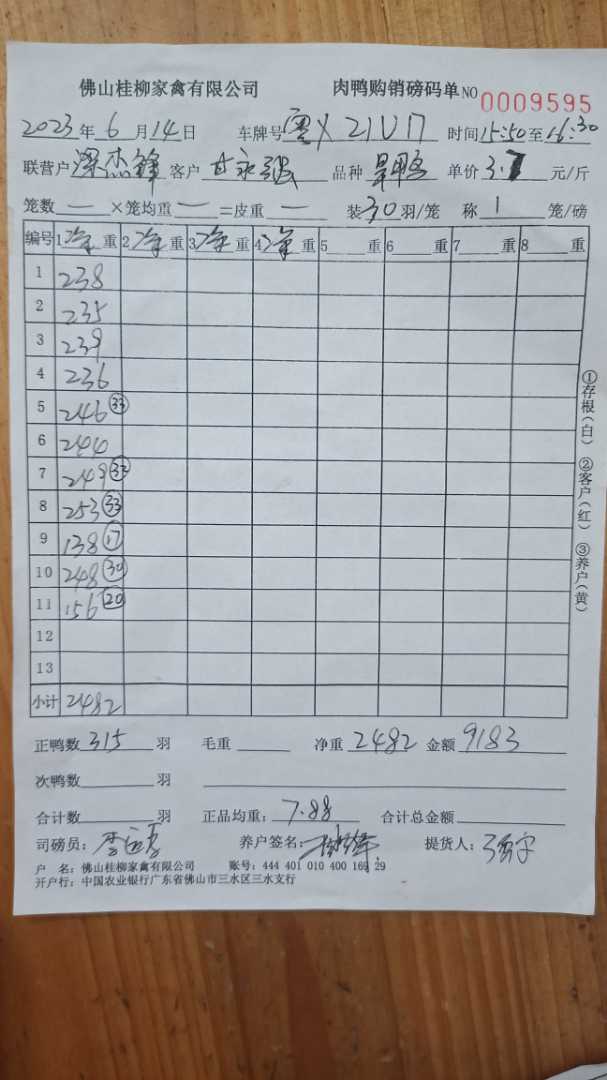 佛山桂柳家禽有限公司 肉鸭购销磅码单 NO 0009595
2023年 6 月 14 日 车牌号 粤X 21U 时间 15:50 至 16:30
联营户 梁杰锋 客户 甘永强 品种 单价 3.7 元/斤
笼数 一 ×笼均重 一 =皮重 一 装 30 羽/笼 称 1 笼/磅
编号 1 净 重 2 净 重 3 净 重 4 净 重 5 重 6 重 7 重 8 重
1 238
2 235
3 239
4 236
5 246 33
6 244
7 249 33
8 253 33
9 138 17
10 248 30
11 156 20
12
13
小计 2482
①存根(白) ②客户(红) ③养户(黄)
正鸭数 315 羽 毛重 净重 2482 金额 9183
次鸭数 羽
合计数 羽 正品均重: 7.88 合计总金额
司磅员: 养户签名: 提货人:
户 名: 佛山桂柳家禽有限公司 账号: 444 401 010 400 169 29
开户行: 中国农业银行广东省佛山市三水区三水支行